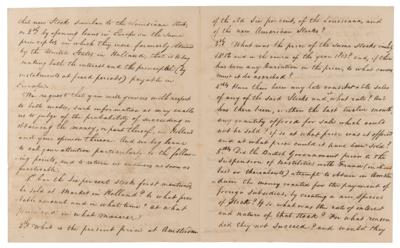 this new Stock similar to the Louisiana stock,
or 3d by opening loans in Europe on the same
principles in which they were formerly obtained
by the United States in Holland, that is to say
making both the interest and the principal (by
instalments at fixed periods) payable in
Europe.
We request that you will give us with respect
to both modes, such information as may enable
us to judge of the probability of succeeding in
obtaining the money, or part thereof, in Holland
and your opinion thereon. And we beg leave
to call your attention particularly to the follow-
ing points, and to return us answers as soon as
practicable.
1st Can the Six per cent Stock first mentioned
be sold at Market in Holland? to what pro-
bable amount and in what time? at what
price and in what manner?
2d What is the present price at Amsterdam
of the old Six per cent, of the Louisiana, and
of the new American Stocks?
3d What was the price of the same Stocks
1811 and in the course of the year 1812? and, if there
has been any variation in the price, to what causes
must it be ascribed?
4th Have there been any late considerable sales
of any of the said Stocks and, what rate? Has
there been, within the last twelve months
any quantity offered for sale which could
not be sold? if so at what price was it offered
and at what price could it have been sold?
5th Did the British Government prior to the
suspension of hostilities with France (in
last or thereabouts) attempt to obtain in Amster-
dam the money wanted for the payment of
foreign Subsidies, by creating a new species
of Stock? If so what was the rate of interest
and nature of that Stock? For what reason
did they not succeed? and would they